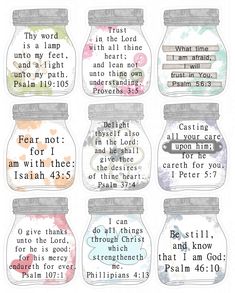 Thy word
is a lamp
unto my feet,
and a light
unto my path.
Psalm 119:105
Trust
in the Lord
with all thine
heart;
and lean not
unto thine own
understanding.
Proverbs 3:5
What time
I am afraid,
I will
trust in You.
Psalm 56:3
Fear not:
for I
am with thee:
Isaiah 43:5
Delight
thyself also
in the Lord:
and he shall
give thee
the desires
of thine heart.
Psalm 37:4
Casting
all your care
upon him;
for he
careth for you.
I Peter 5:7
O give thanks
unto the Lord,
for he is good:
for his mercy
endureth for ever.
Psalm 107:1
I can
do all things
through Christ
which
strengtheneth
me.
Phillipians 4:13
Be still,
and know
that I am God:
Psalm 46:10